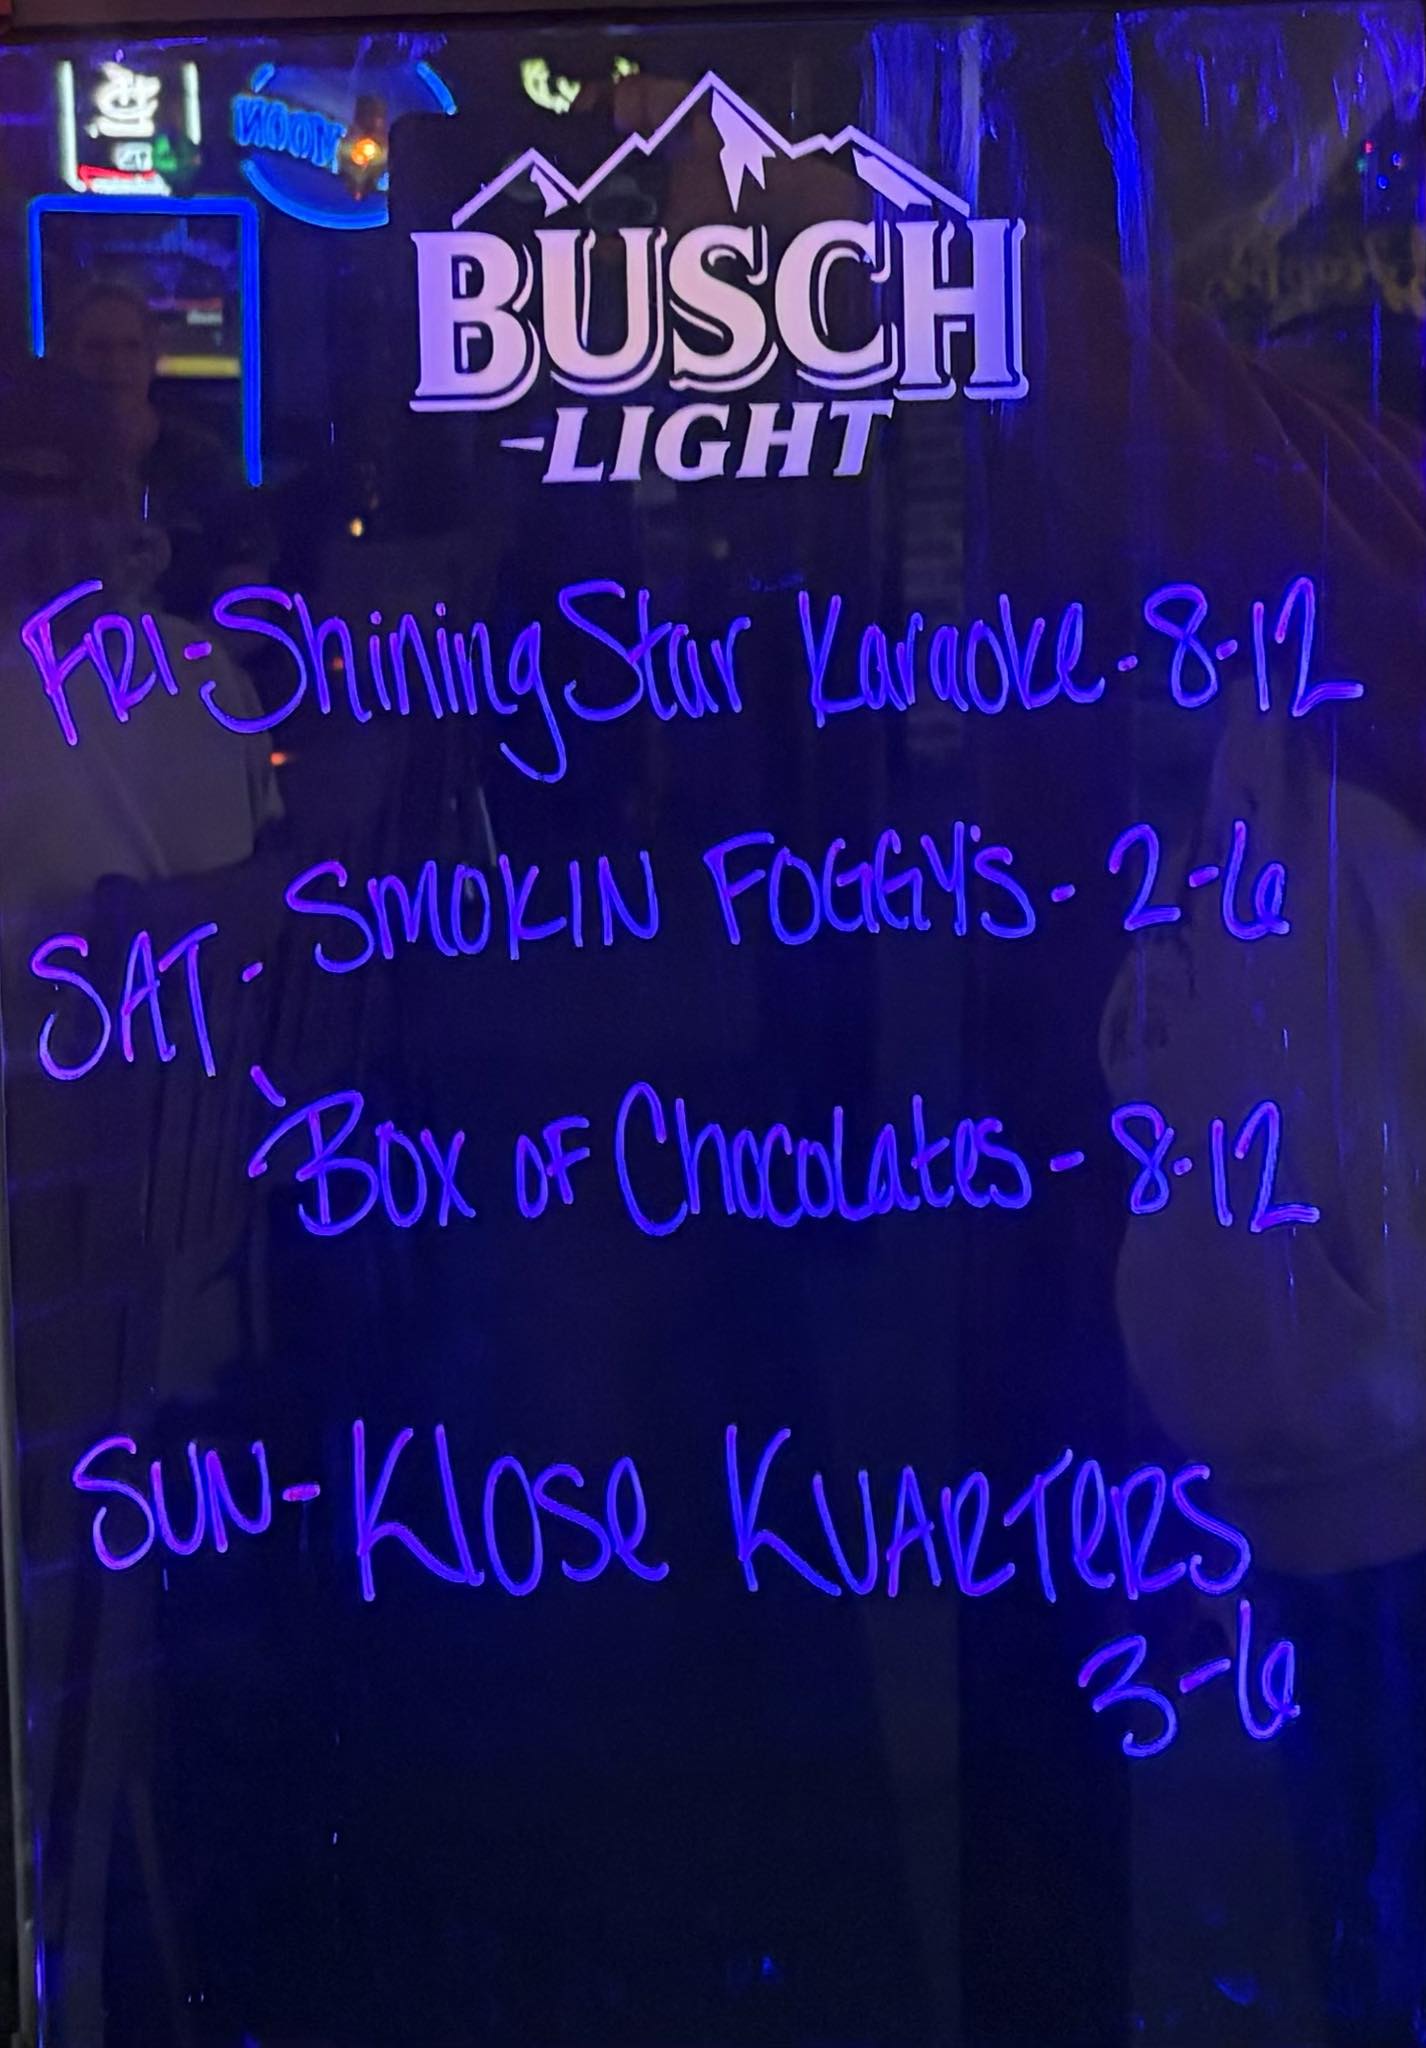 MOON
BUSCH
LIGHT
FRI - Shining Star Karaoke - 8-12
SAT - SMOKIN FOGGY'S - 2-6
BOX OF Chocolates - 8-12
SUN - Klose KVARTERS
3-6